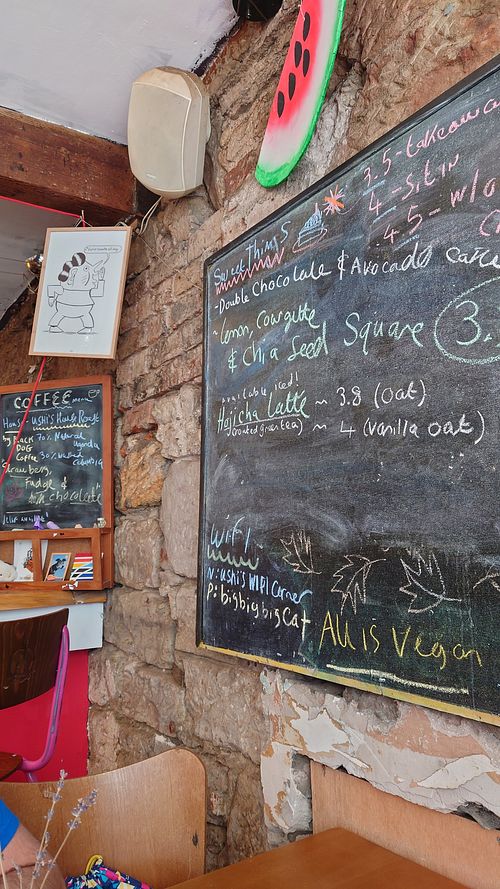 3.5 - takeaway
4 - sit in
4.5 - w/o
Sweet Things
- Double Chocolate & Avocado cake
~ Lemon, Courgette
& Chia Seed Square 3.
available iced!
Hojicha Latte ~ 3.8 (oat)
(roasted green tea) ~ 4 (vanilla oat)
Wifi
N: ushi's WIFI Corner
P: bigbigbigCat
All is Vegan
COFFEE menu
USHI'S House Roast
by Black 70% Natural
DOG Uganda
Coffee 30% washed
Strawberry,
Fudge &
chocolate